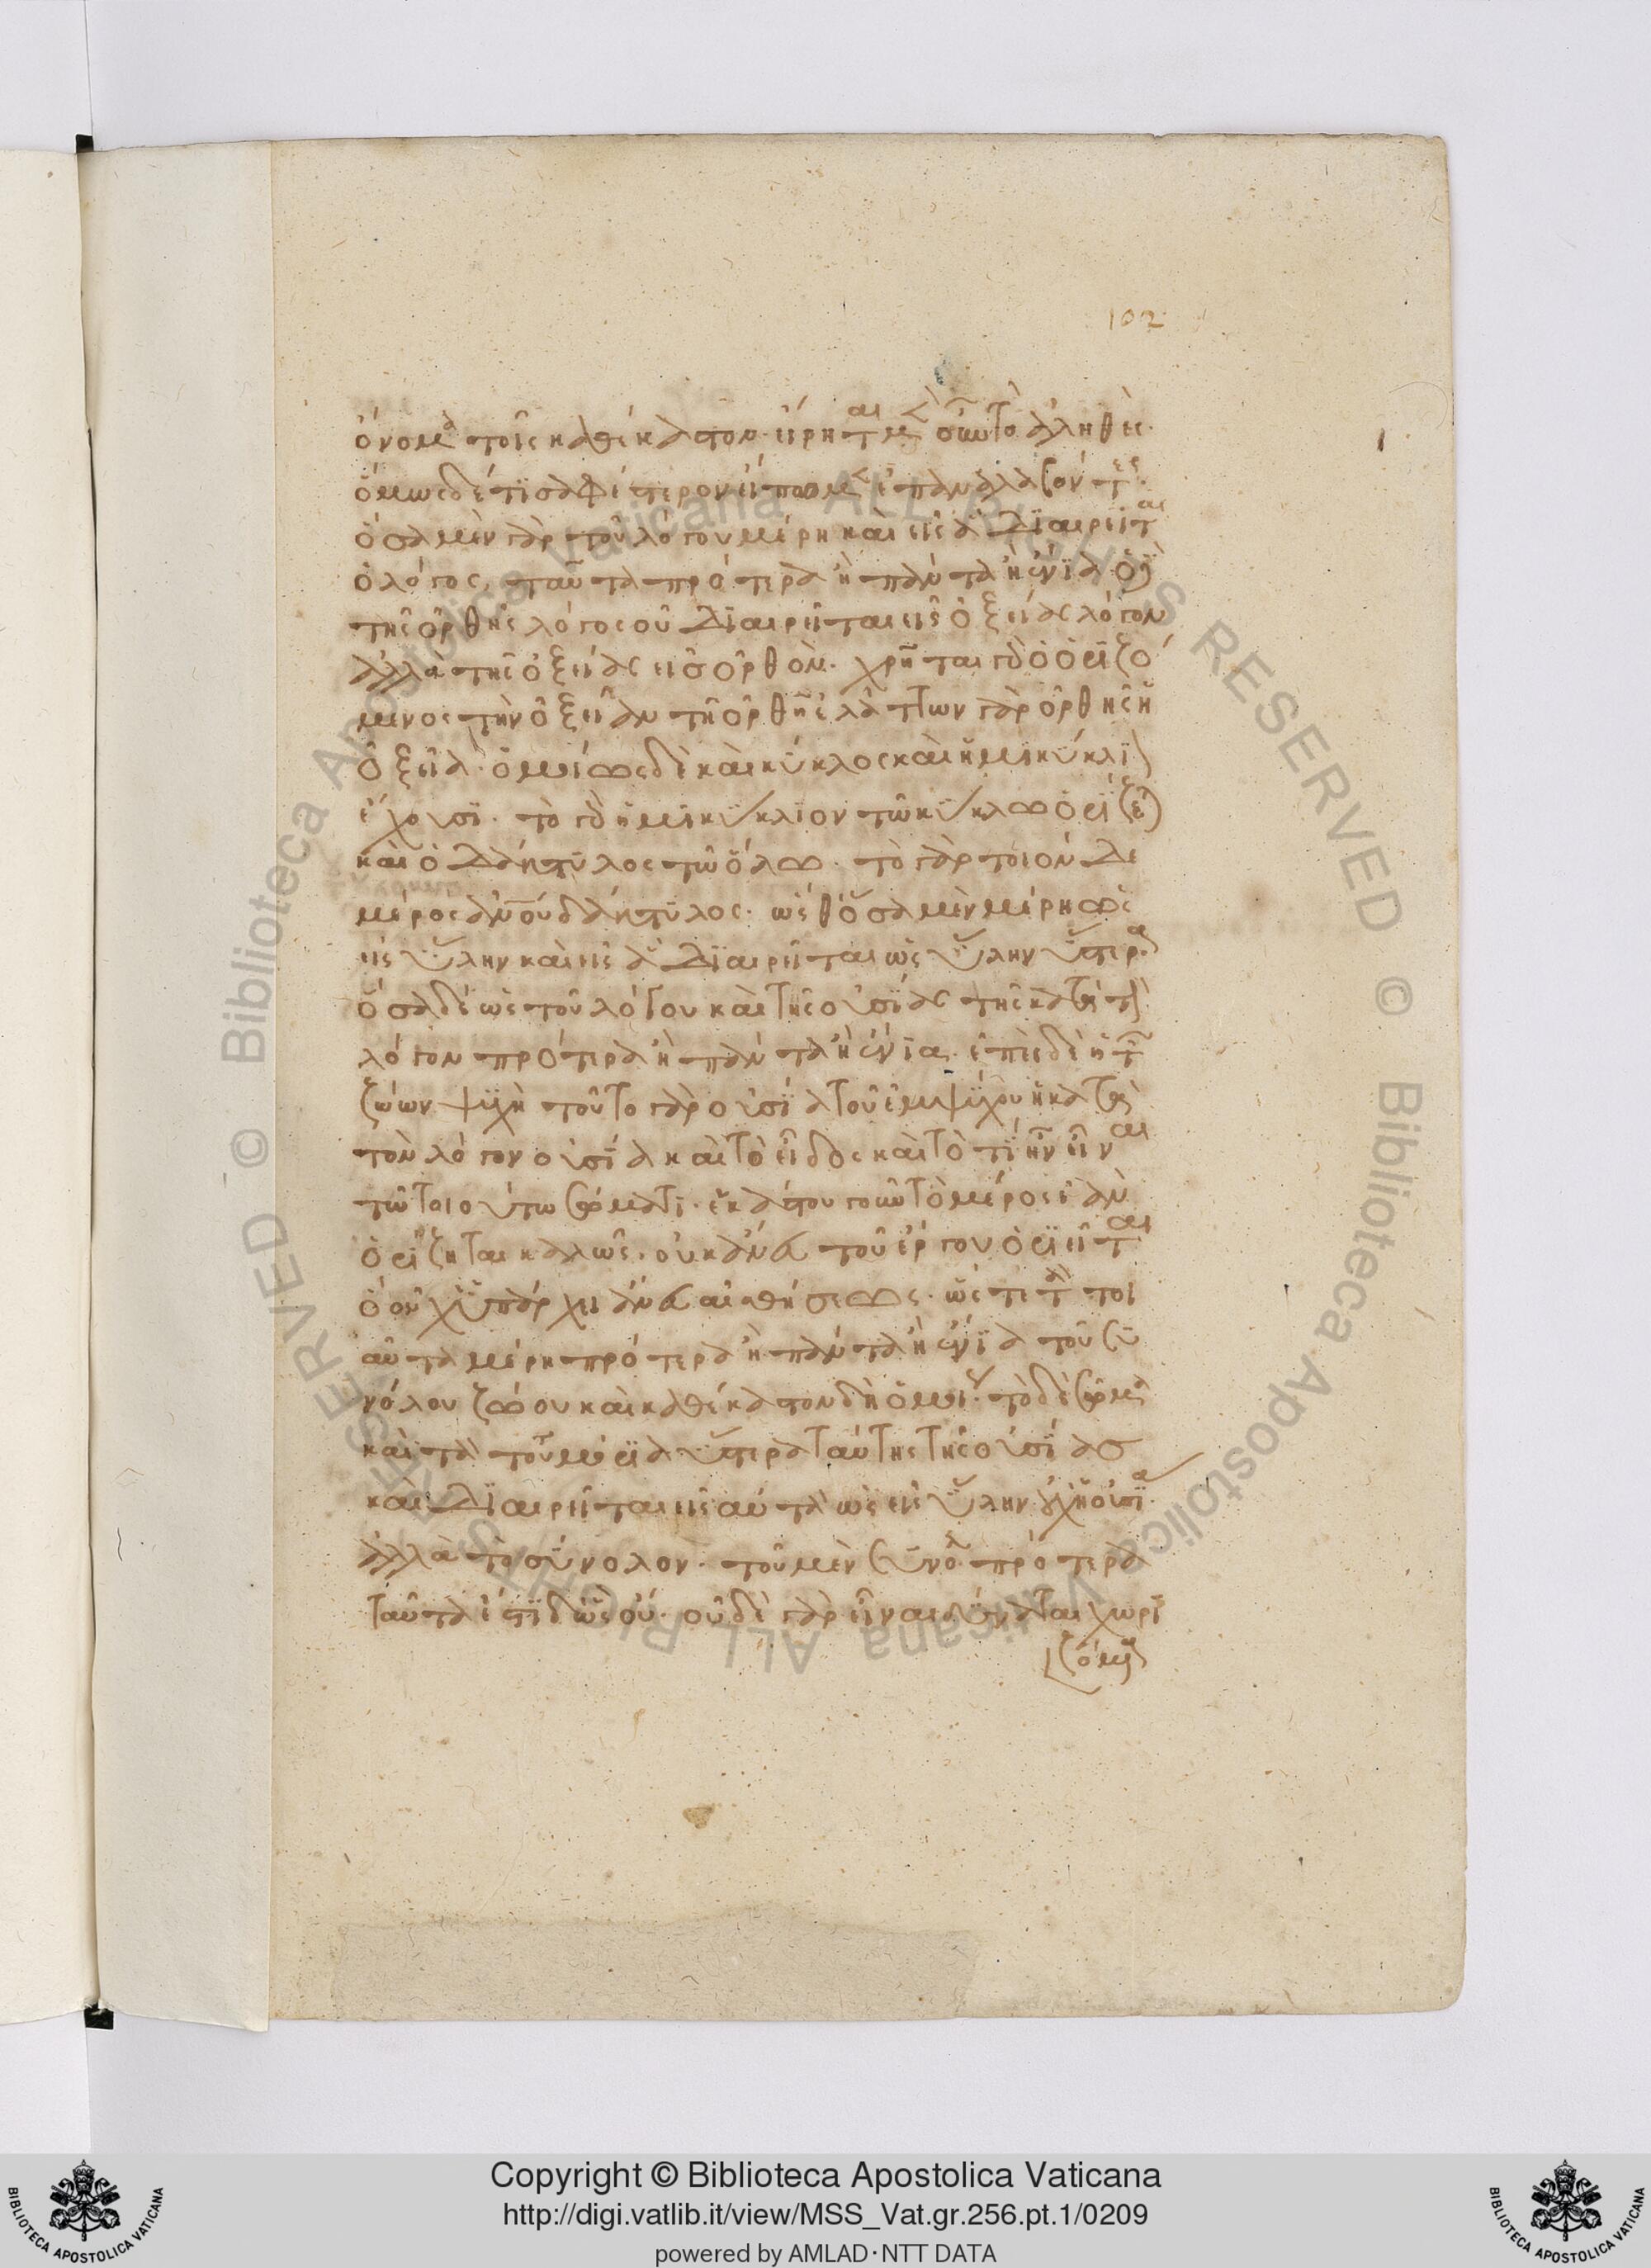 ὄνομα τοῖς καθέκαστον· εἴρηται μὲν οὖν τὸ ἀληθές·
ὅμως δέ τι σαφέστερον εἴπωμεν ἐπαναλαβόντες·
ὅσα μὲν γὰρ τοῦ λόγου μέρη καὶ εἰς ἃ διαιρεῖται
ὁ λόγος, ταῦτα πρότερα ἢ πάντα ἢ ἔνια· ὁ δὲ
τῆς ὀρθῆς λόγος οὐ διαιρεῖται εἰς ὀξείας λόγον
ἀλλὰ τῆς ὀξείας εἰς ὀρθόν· χρῆται γὰρ ὁ ὁριζό
μενος τὴν ὀξεῖαν τῆ ὀρθῆ ἐλάττων γὰρ ὀρθῆς ἡ
ὀξεῖα· ὁμοίως δὲ καὶ κύκλος καὶ ἡμικύκλιον
ἔχουσι· τὸ γὰρ ἡμικύκλιον τῶ κύκλω ὁρίζεται
καὶ ὁ δάκτυλος τῶ ὅλω· τὸ γὰρ τοιόνδε
μέρος ἀνθρώπου δάκτυλος· ὥσθ' ὅσα μὲν μέρη ὡς
εἰς ὕλην καὶ εἰς ἃ διαιρεῖται ὡς ὕλην ὕστερα
ὅσα δὲ ὡς τοῦ λόγου καὶ τῆς οὐσίας τῆς κατὰ τὸν
λόγον πρότερα ἢ πάντα ἢ ἔνια· ἐπεὶ δὲ ἡ τῶν
ζώων ψυχὴ τοῦτο γὰρ οὐσία τοῦ ἐμψύχου ἡ κατὰ
τὸν λόγον οὐσία καὶ τὸ εἶδος καὶ τὸ τί ἦν εἶναι
τῶ τοιούτω σώματι· ἑκάστου γοῦν τὸ μέρος ἐὰν
ὁρίζηται καλῶς· οὐκ ἄνευ τοῦ ἔργου ὁριεῖται
ὃ οὐχ ὑπάρχει ἄνευ αἰσθήσεως· ὥστε τὰ τοι
αῦτα μέρη πρότερα ἢ πάντα ἢ ἔνια τοῦ συ
νόλου ζώου καὶ καθέκαστον δὴ ὁμοίως· τὸ δὲ σῶμα
καὶ τὰ τούτου μόρια ὕστερα ταύτης τῆς οὐσίας
καὶ διαιρεῖται εἰς αὐτὰ ὡς εἰς ὕλην οὐχ ἡ οὐσία·
ἀλλὰ τὸ σύνολον· τοῦ μὲν συνόλου πρότερα
ταῦτα ἔστι δ' ὡς οὔ· οὐδὲ γὰρ εἶναι δύναται χωρι
ζόμενα
102
© Biblioteca Apostolica Vaticana ALL RIGHTS RESERVED © Biblioteca Apostolica Vaticana ALL RIGHTS RESERVED
BIBLIOTECA APOSTOLICA VATICANA
Copyright © Biblioteca Apostolica Vaticana
http://digi.vatlib.it/view/MSS_Vat.gr.256.pt.1/0209
powered by AMLAD·NTT DATA
BIBLIOTECA APOSTOLICA VATICANA